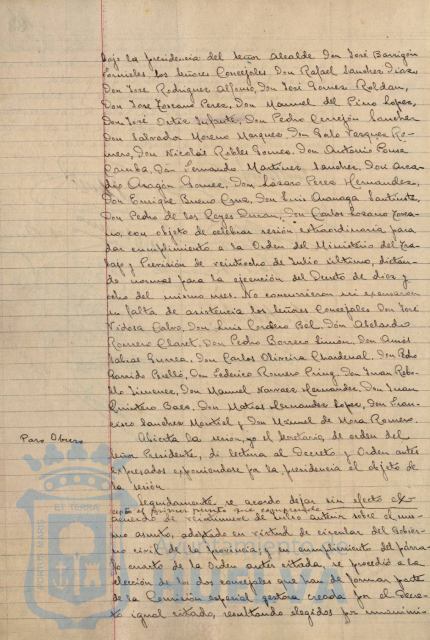 bajo la presidencia del Señor Alcalde Don José Barrigón
Fornieles los Señores Concejales Don Rafael Sanchez Diaz,
Don Jose Rodriguez Alfonso, Don José Gomez Roldan,
Don Jose Lozano Perez, Don Manuel del Pino Lopez,
Don José Ortiz Infante, Don Pedro Cerrejón Sanchez
Don Salvador Moreno Marquez, Don Vazquez Ro-
mero, Don Nicolás Robles Gomez, Don Antonio Ponce
Don Fernando Martinez Sanchez, Don Arca-
dio Aragón Gomez, Don Lazaro Perez Hernandez,
Don Enrique Bueno Cruz, Don Luis
Don Pedro de los Reyes Duran, Don Carlos Lozano
no, con objeto de celebrar sesión extraordinaria para
dar cumplimiento a la Orden del Ministerio del Tra-
bajo y Previsión de veintiocho de Julio último, dictan-
do normas para la ejecución del Decreto de diez y
ocho del mismo mes. No concurrieron ni excusaron
su falta de asistencia los Señores Concejales Don José
Calvo, Don Luis Cordero Bel, Don Abelardo
Romero Claret, Don Pedro Borrero Limón, Don Amós
Gurrea, Don Carlos Oliveira Chardenal, Don
Garrido Perelló, Don Federico Romero Don Juan
Jimenez, Don Manuel Narvaez Hernandez, Don Juan
Quintero Baez, Don Matias Hernandez Lopez, Don Fran-
cisco Sanchez y Don Manuel de Mora Romero.
Paro Obrero
Abierta la sesión, yo el Secretario de orden del
Señor Presidente, di lectura al Decreto y Orden antes
expresados exponiendose por la presidencia el objeto de
la sesión.
Seguidamente se acordó dejar sin efecto
el primer punto que comprende
acuerdo de de Julio anterior sobre el mis-
mo asunto, adoptado en virtud de circular del Gobier-
no civil de la Provincia; y en cumplimiento del párra-
fo cuarto de la Orden antes citada, se procedió a la
elección de los dos concejales que han de formar parte
de la Comisión especial gestora creada por el Decre-
to igual citado, resultando elegidos por unanimi-